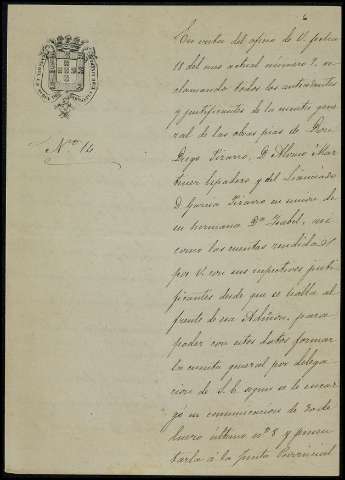 6
En virtud del oficio de V. fecha
18 del mes actual número 7, re-
clamando todos los antecedentes
y justificantes de la cuenta gene-
ral de las obras pias de Don
Diego Pizarro, D. Alonso Mar-
tinez Espadero y del Licenciado
D. Garcia Pizarro en union de
su hermana Dª Isabel, asi
como las cuentas rendidas
por V. con sus respectivos justi-
ficantes desde que se halla al
frente de esa Admon, para
poder con estos datos formar
la cuenta general por delega-
cion de S. E. segun se le encar-
gó en comunicacion de de
Enero último nº 8 y presen-
tarla á la Junta Provincial
Nº 14